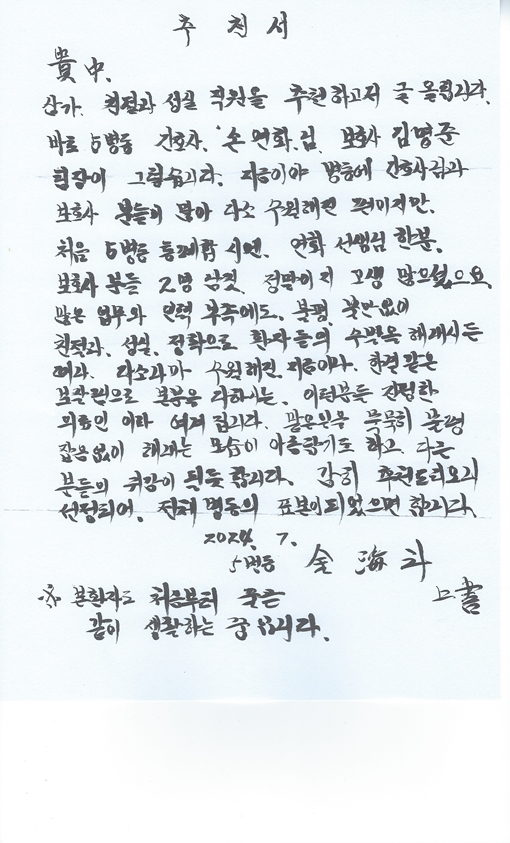 추천서
貴中.
삼가. 친절과 성실 직원을 추천하고저 글 올립니다.
바로 5병동 간호사. '손연화'님. 보호사 김명준
팀장이 그렇습니다. 지금이야 병동에 간호사님과
보호사 분들이 많아 다소 수월해진 편이지만.
처음 5병동 통폐합 시엔. 연화 선생님 한분.
보호사 분들 2명 남짓. 정말이지 고생 많으셨으요.
많은 업무와 인력 부족에도. 불평. 불만없이
친절과. 성실. 정확으로 환자들의 수발을 해내시는
다소나마 수월해진 지금이나. 한결같은
보살핌으로 본분을 다하시는. 이런분들 진정한
의료인 이라 여겨 집니다. 맡은일을 묵묵히 불평
잡음없이 해내는 모습이 아름답기도 하고 다른
분들의 귀감이 될듯 합니다. 감히 추천드리오니
선정되어. 전체 병동의 표본이 되었으면 합니다.
2024. 7.
5병동 金海斗
上書
※ 본환자도 처음부터 죽은
같이 생활하는 중입니다.